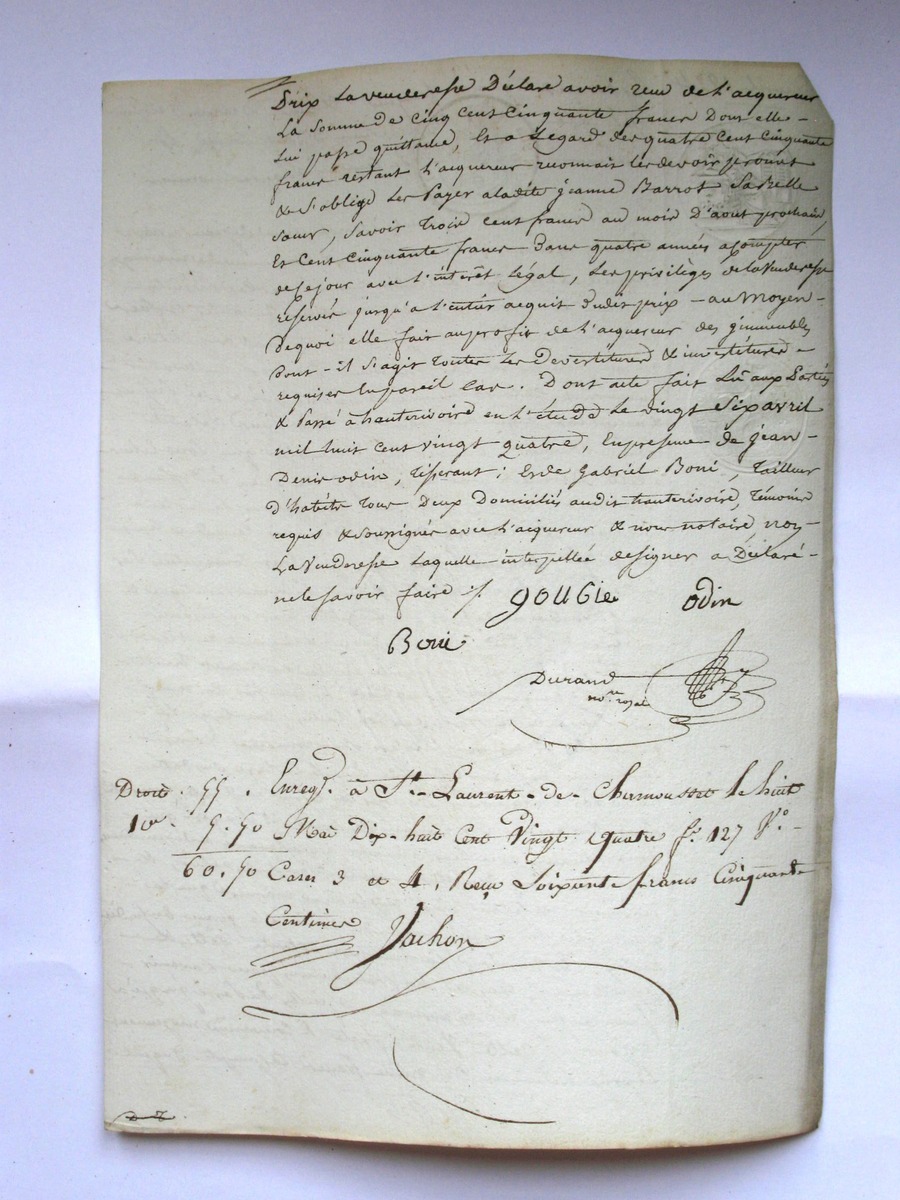 Prix la venderesse Déclare avoir reçu de l'acquereur
La Somme de cinq cent cinquante francs Dont elle
lui passe quittance, Et a Legard des quatre cent cinquante
francs restant l'acquereur reconnait les devoir
& s'oblige les Payer a ladite jeanne Barrot Sa Belle
sœur, savoir Trois cent francs au mois D'aout prochain,
Et Cent Cinquante francs Dans quatre années a compter
de ce jour avec l'intérêt Légal, les privilèges de la Venderesse
reservés jusqu'a l'entier acquit dudit prix - au Moyen
Dequoi elle fait au profit de l'acquereur des jmmeubles
Dont - il S'agit toutes les Devestitures & investitures
requises En pareil Cas. Dont acte fait Lu aux Parties
& Passé à hauterivoire en l'étude Le vingt Six avril
mil huit cent vingt quatre, En presence de jean
Denis odin, Tisserant; Et de Gabriel Boni, Tailleur
d'habits tous Deux Domiciliés audit hauterivoire, Témoins
requis & soussignés avec l'acquereur & nous notaire, non
La Venderesse laquelle interpellée de signer a Déclaré
ne le savoir faire ./.
gouGie odin
Boni
Durand
no.re royal
Droits . 55 . Enreg. à St. Laurent - de - Chamousset le huit
10e. 5.50 Mai Dix-huit Cent Vingt quatre f.o 127 V.o
60.50 Cases 3 et 4. Reçu Soixante francs Cinquante
Centimes Vachon